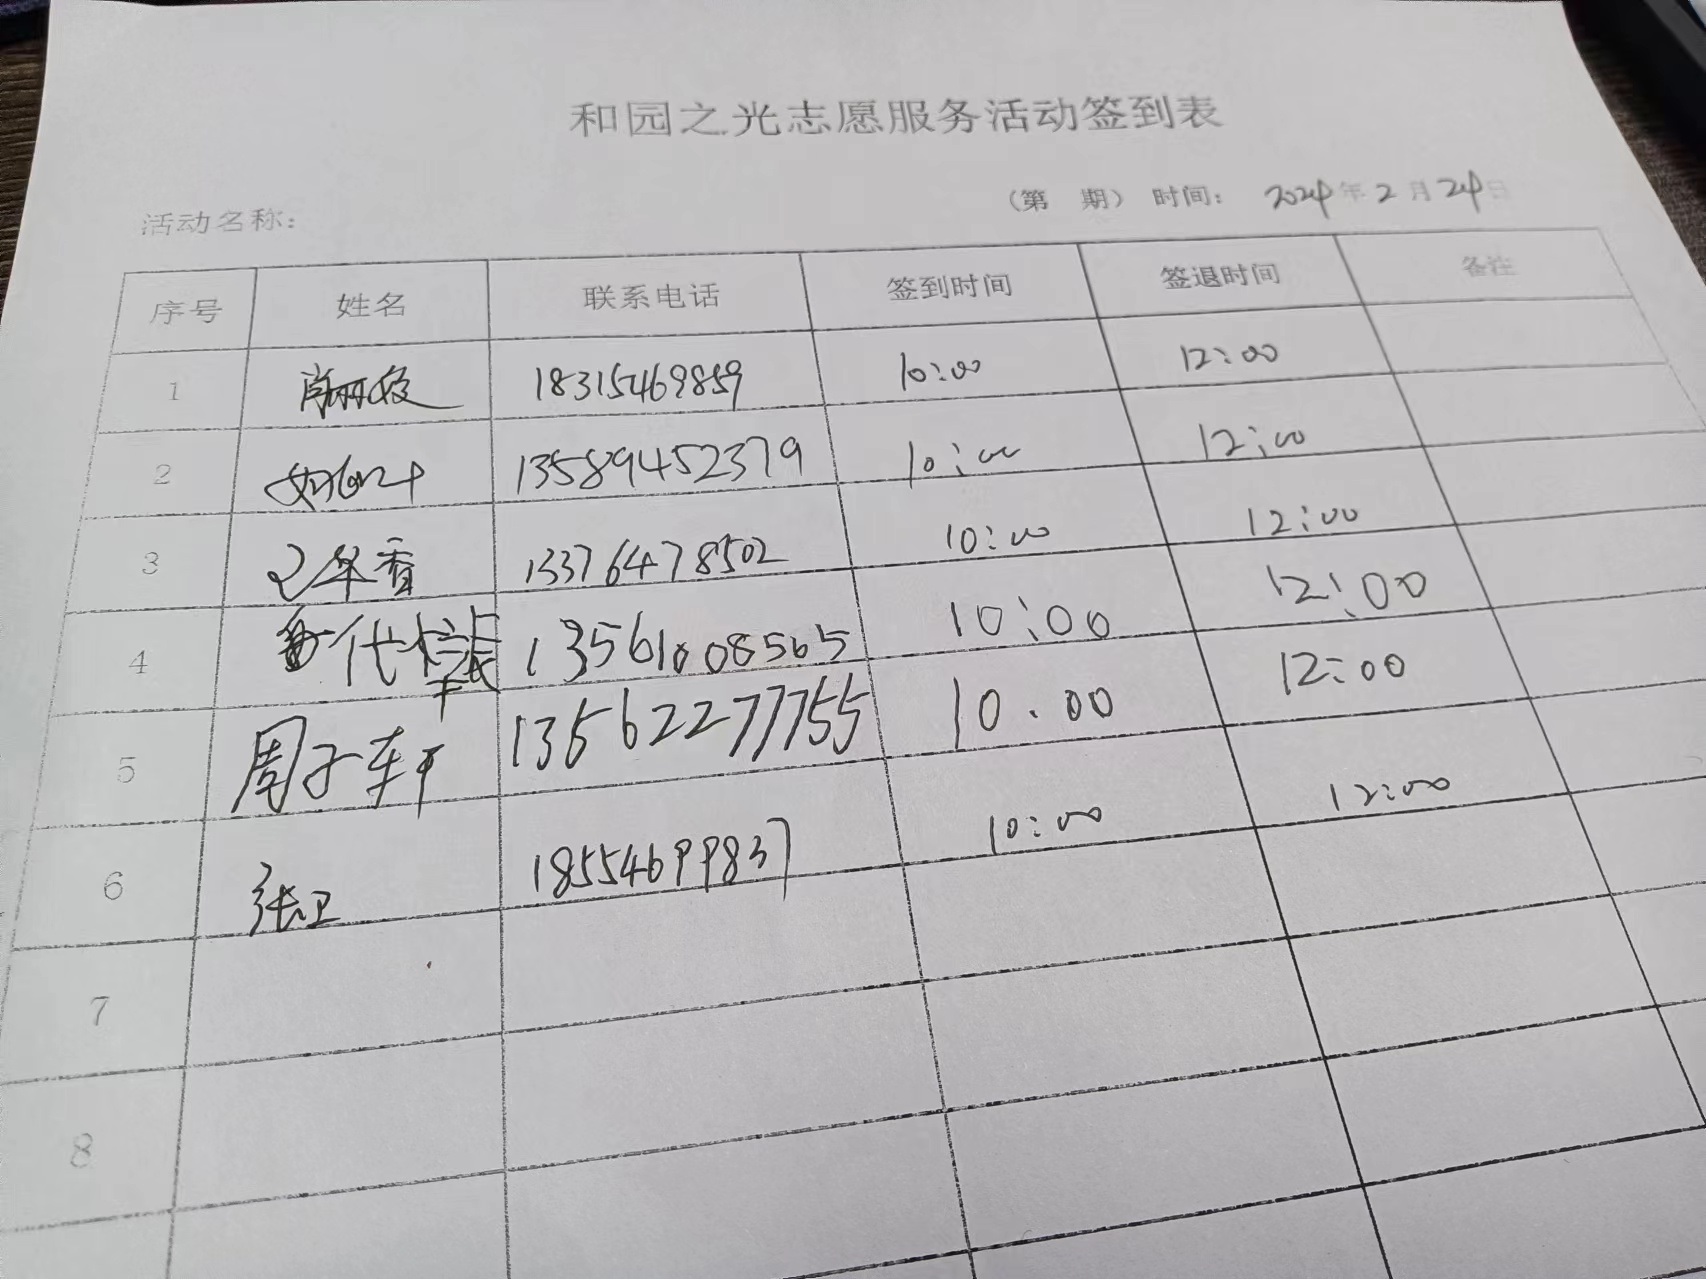 和园之光志愿服务活动签到表
活动名称: （第 期）时间: 2024年2月24日
序号 姓名 联系电话 签到时间 签退时间 备注
1 18315469859 10:00 12:00
2 13589452379 10:00 12:00
3 13376478502 10:00 12:00
4 13561008565 10:00 12:00
5 周子轩 13562277755 10.00 12:00
6 张卫 18554699837 10:00 12:00
7
8